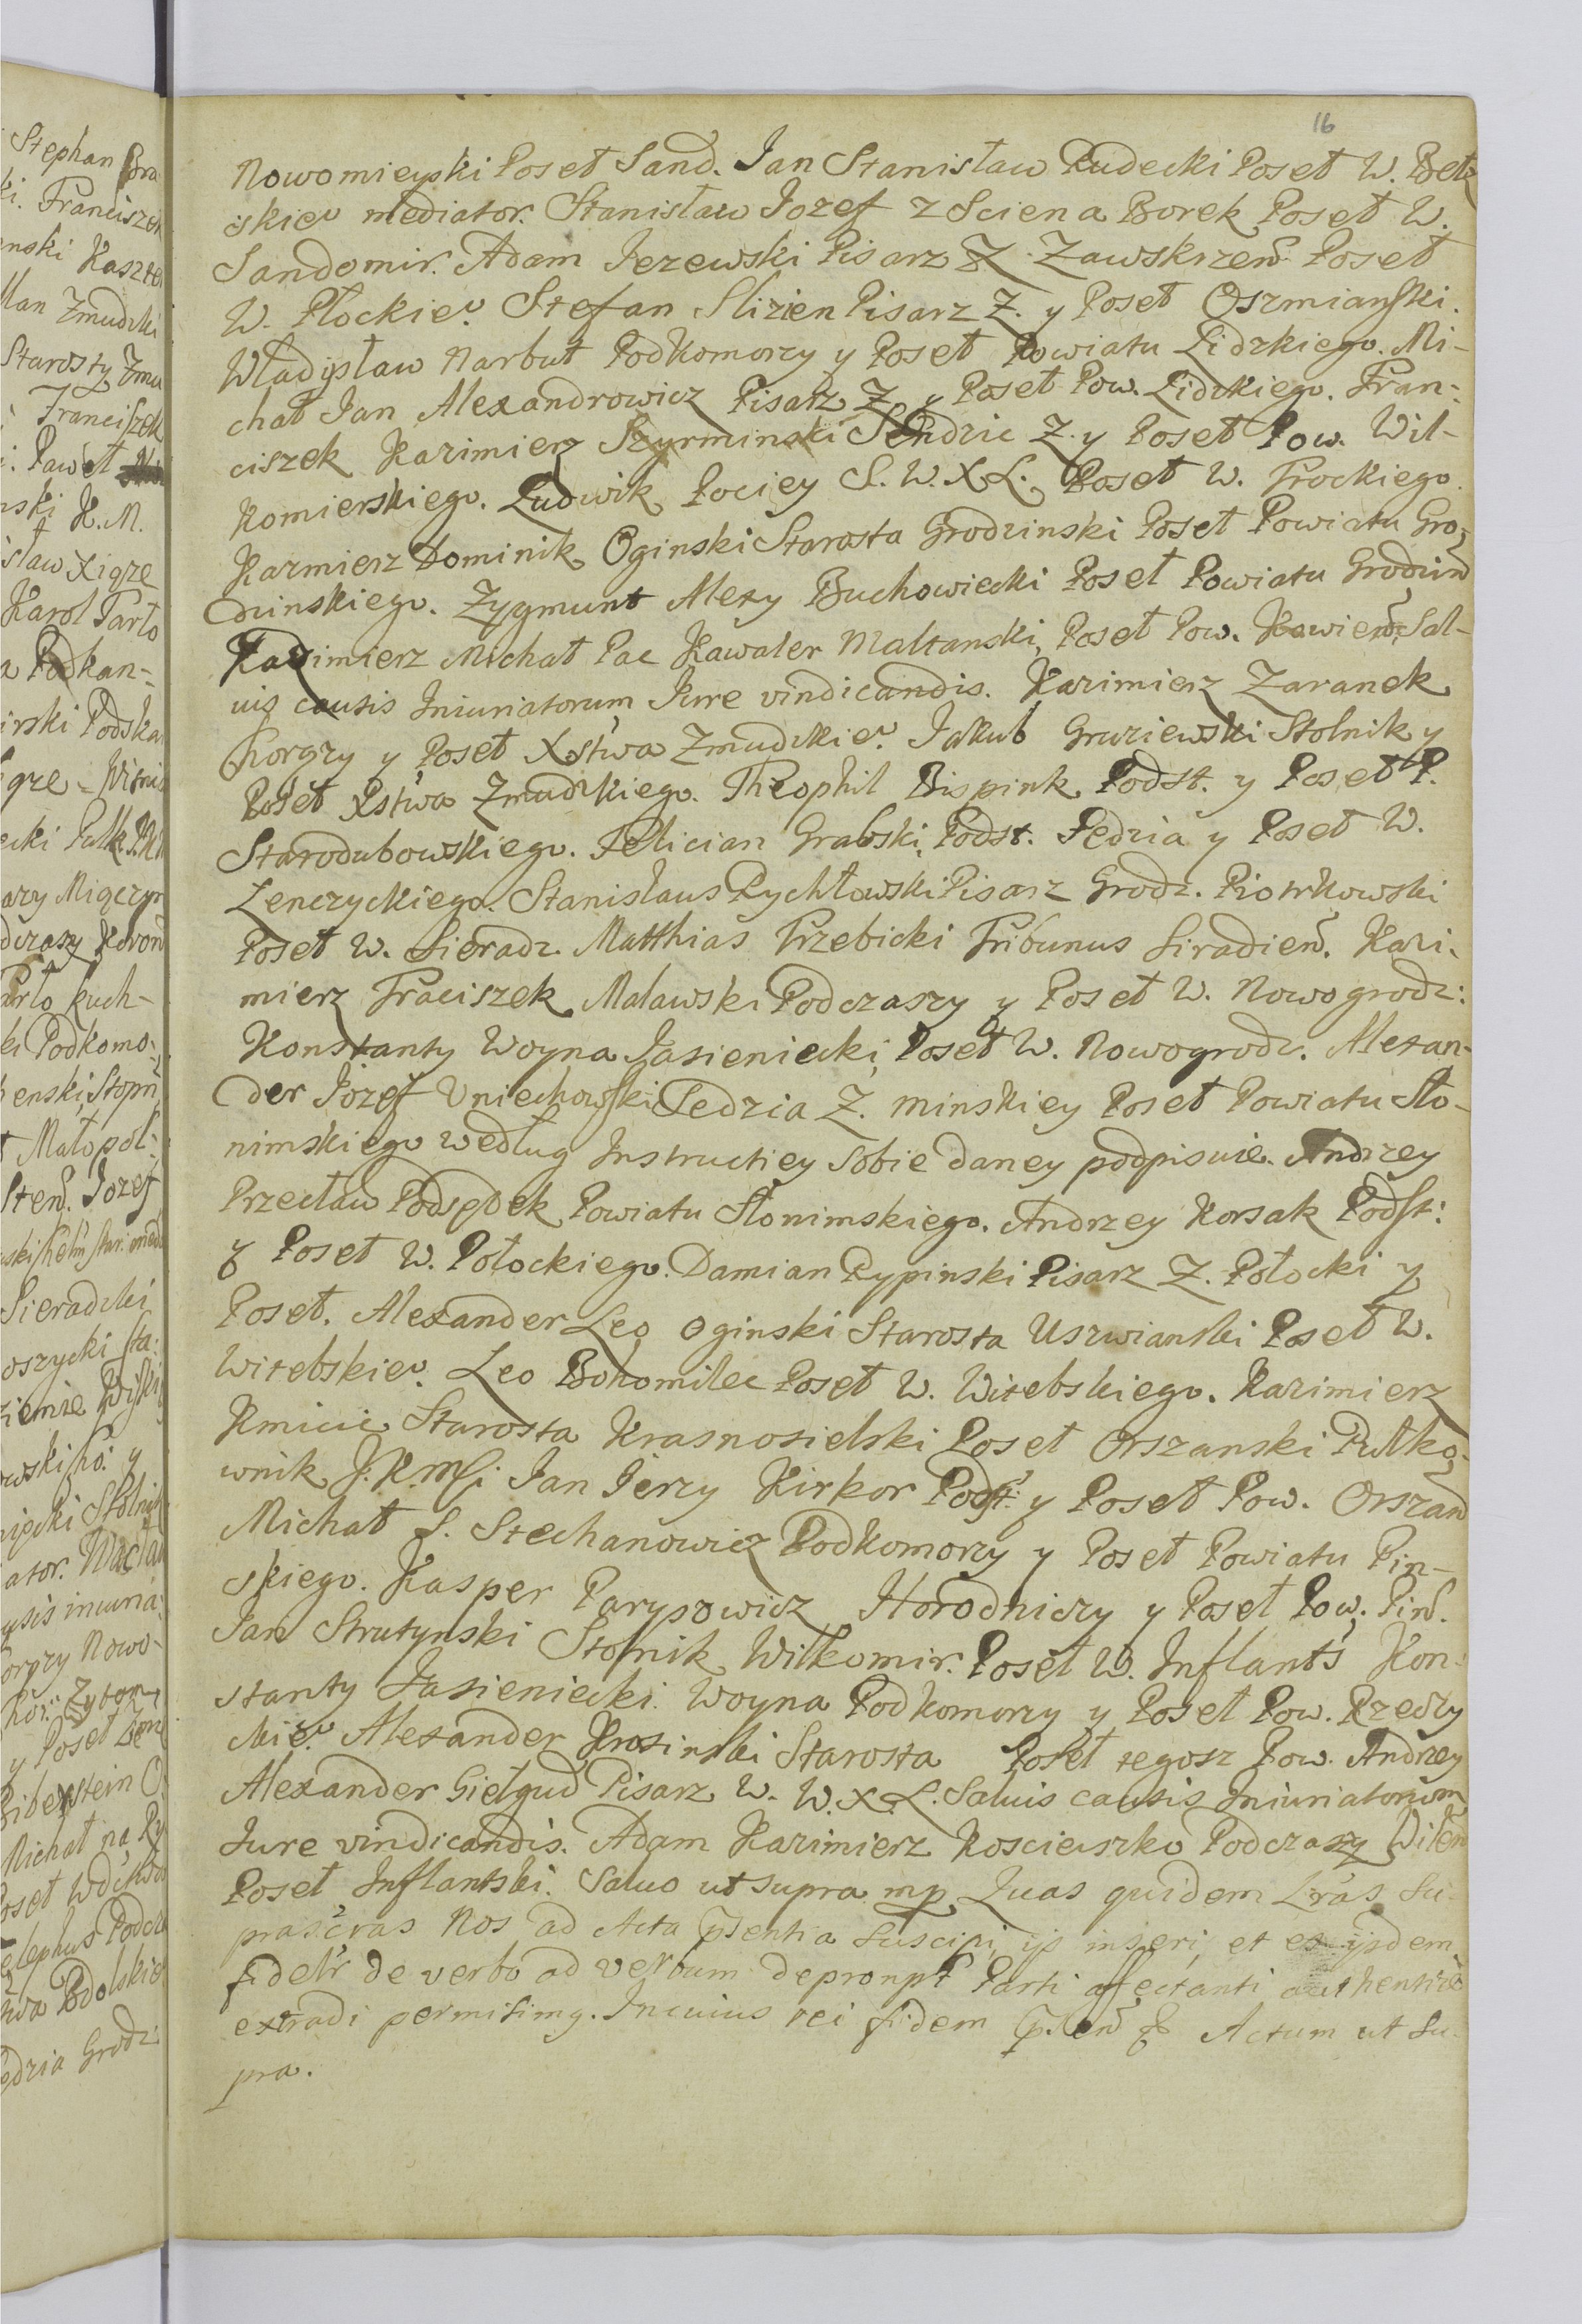 16
Nowomieyski Poseł Sand. Jan Stanisław Rudecki Poseł W. Bełz
skieo mediator. Stanisław Jozef z Sciena Borek Poseł W.
Sandomir. Adam Jezewski Pisarz Z. Zawskrzen Poseł
W. Płockieo. Stefan Slizien Pisarz Z. y Poseł Oszmianski.
Władysław Narbut Podkomorzy y Poseł Powiatu Lidzkiego. Mi-
chał Jan Alexandrowicz Pisarz Z. y Poseł Pow. Lidzkiego. Fran-
ciszek Kazimierz Szyrminski Sendzic Z. y Poseł Pow. Wil-
komierskiego. Ludwik Pociey S. W. X L. Poseł W. Trockiego.
Kazmierz Dominik Oginski Starosta Grodzinski Poseł Powiatu Gro-
dzinskiego. Zygmunt Alexy Buchowiecki Poseł Powiatu Grodzin
Kazimierz Michał Pac Kawaler Maltanski, Poseł Pow. Kowien. Sal-
uis causis Iniuriatorum Jure vindicandis. Kazimierz Zaranek
Chorązy y Poseł Xstwa Zmudzkieo. Jakub Gruziewski Stolnik y
Poseł Xstwa Zmudzkiego. Theophil Bispink Podst. y Poseł P.
Starodubowskiego. Felician Grabski, Podst. Sedzia y Poseł W.
Lenczyckiego. Stanislaus Rychłowski Pisarz Grodz. Piotrkowski
Poseł W. Sieradz. Matthias Trzebicki Tribunus Siradien. Kazi-
mierz Fraciszek Malawski Podczaszy y Poseł W. Nowogrodz:
Konstanty Woyna Jasieniecki, Poseł W. Nowogrodz. Alexan-
der Jozef Uniechowski Sedzia Z. minskiey Poseł Powiatu Sło-
nimskiego według Instructiey sobie daney podpisuie. Andrzey
Przecław Podsędek Powiatu Słonimskiego. Andrzey Korsak Podst:
y Poseł W. Połockiego. Damian Rypinski Pisarz Z. Połocki y
Poseł. Alexander Leo Oginski Starosta Uszwianski Poseł W.
Witebskieo. Leo Bohomilec Poseł W. Witebskiego. Kazimierz
Kmicic Starosta Krasnosielski Poseł Orszanski Pułko-
wnik J.K.Msi Jan Jerzy Kirkor Podst: y Poseł Pow. Orszan
Michał S. Stechanowicz Podkomorzy y Poseł Powiatu Pin-
skiego. Kasper Parypsowicz Horodniczy y Poseł Pow. Pin.
Jan Strutynski Stolnik Wilkomir. Poseł W. Inflants Kon-
stanty Jasieniecki Woyna Podkomorzy y Poseł Pow. Rzeczy
ckieo Alexander Krosinski Starosta Poseł tegosz Pow. Andrzey
Alexander Giełgud Pisarz W. W. X. L. Saluis causis Iniuriatorum
Jure vindicandis. Adam Kazimierz Kosciuszko Podczaszy Wilen
Poseł Inflantski. Saluo ut supra mp Quas quidem Lras su-
prascras Nos ad Acta psentia suscipi ijs inseri, et ex ijsdem
fidelr de verbo ad verbum deprompt Parti affectanti authentice
extradi permisimg. In cuius rei fidem psen & Actum ut su-
pra.